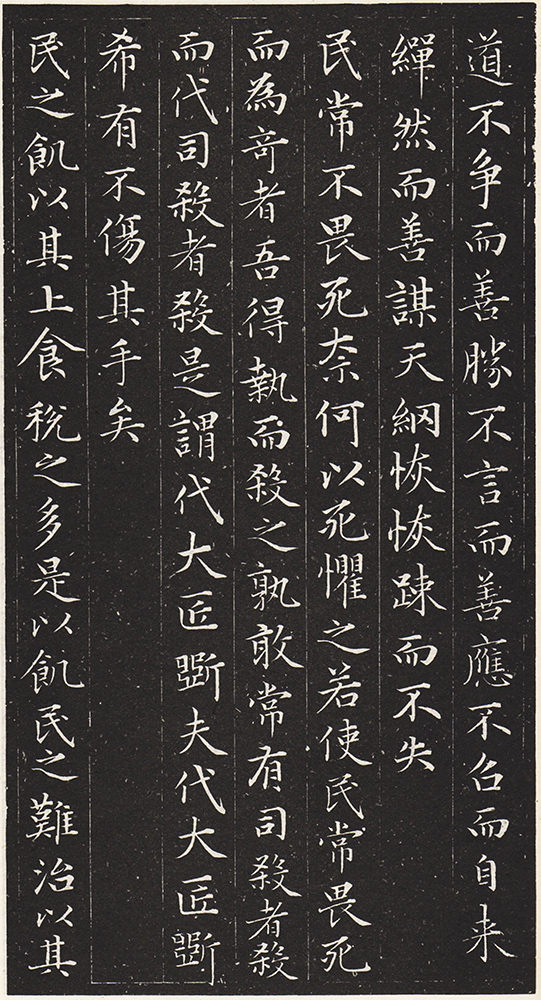 道不争而善勝不言而善應不召而自来
繟然而善謀天網恢恢踈而不失
民常不畏死奈何以死懼之若使民常畏死
而為竒者吾得執而殺之孰敢常有司殺者殺
而代司殺者殺是謂代大匠斲夫代大匠斲
希有不傷其手矣
民之飢以其上食稅之多是以飢民之難治以其